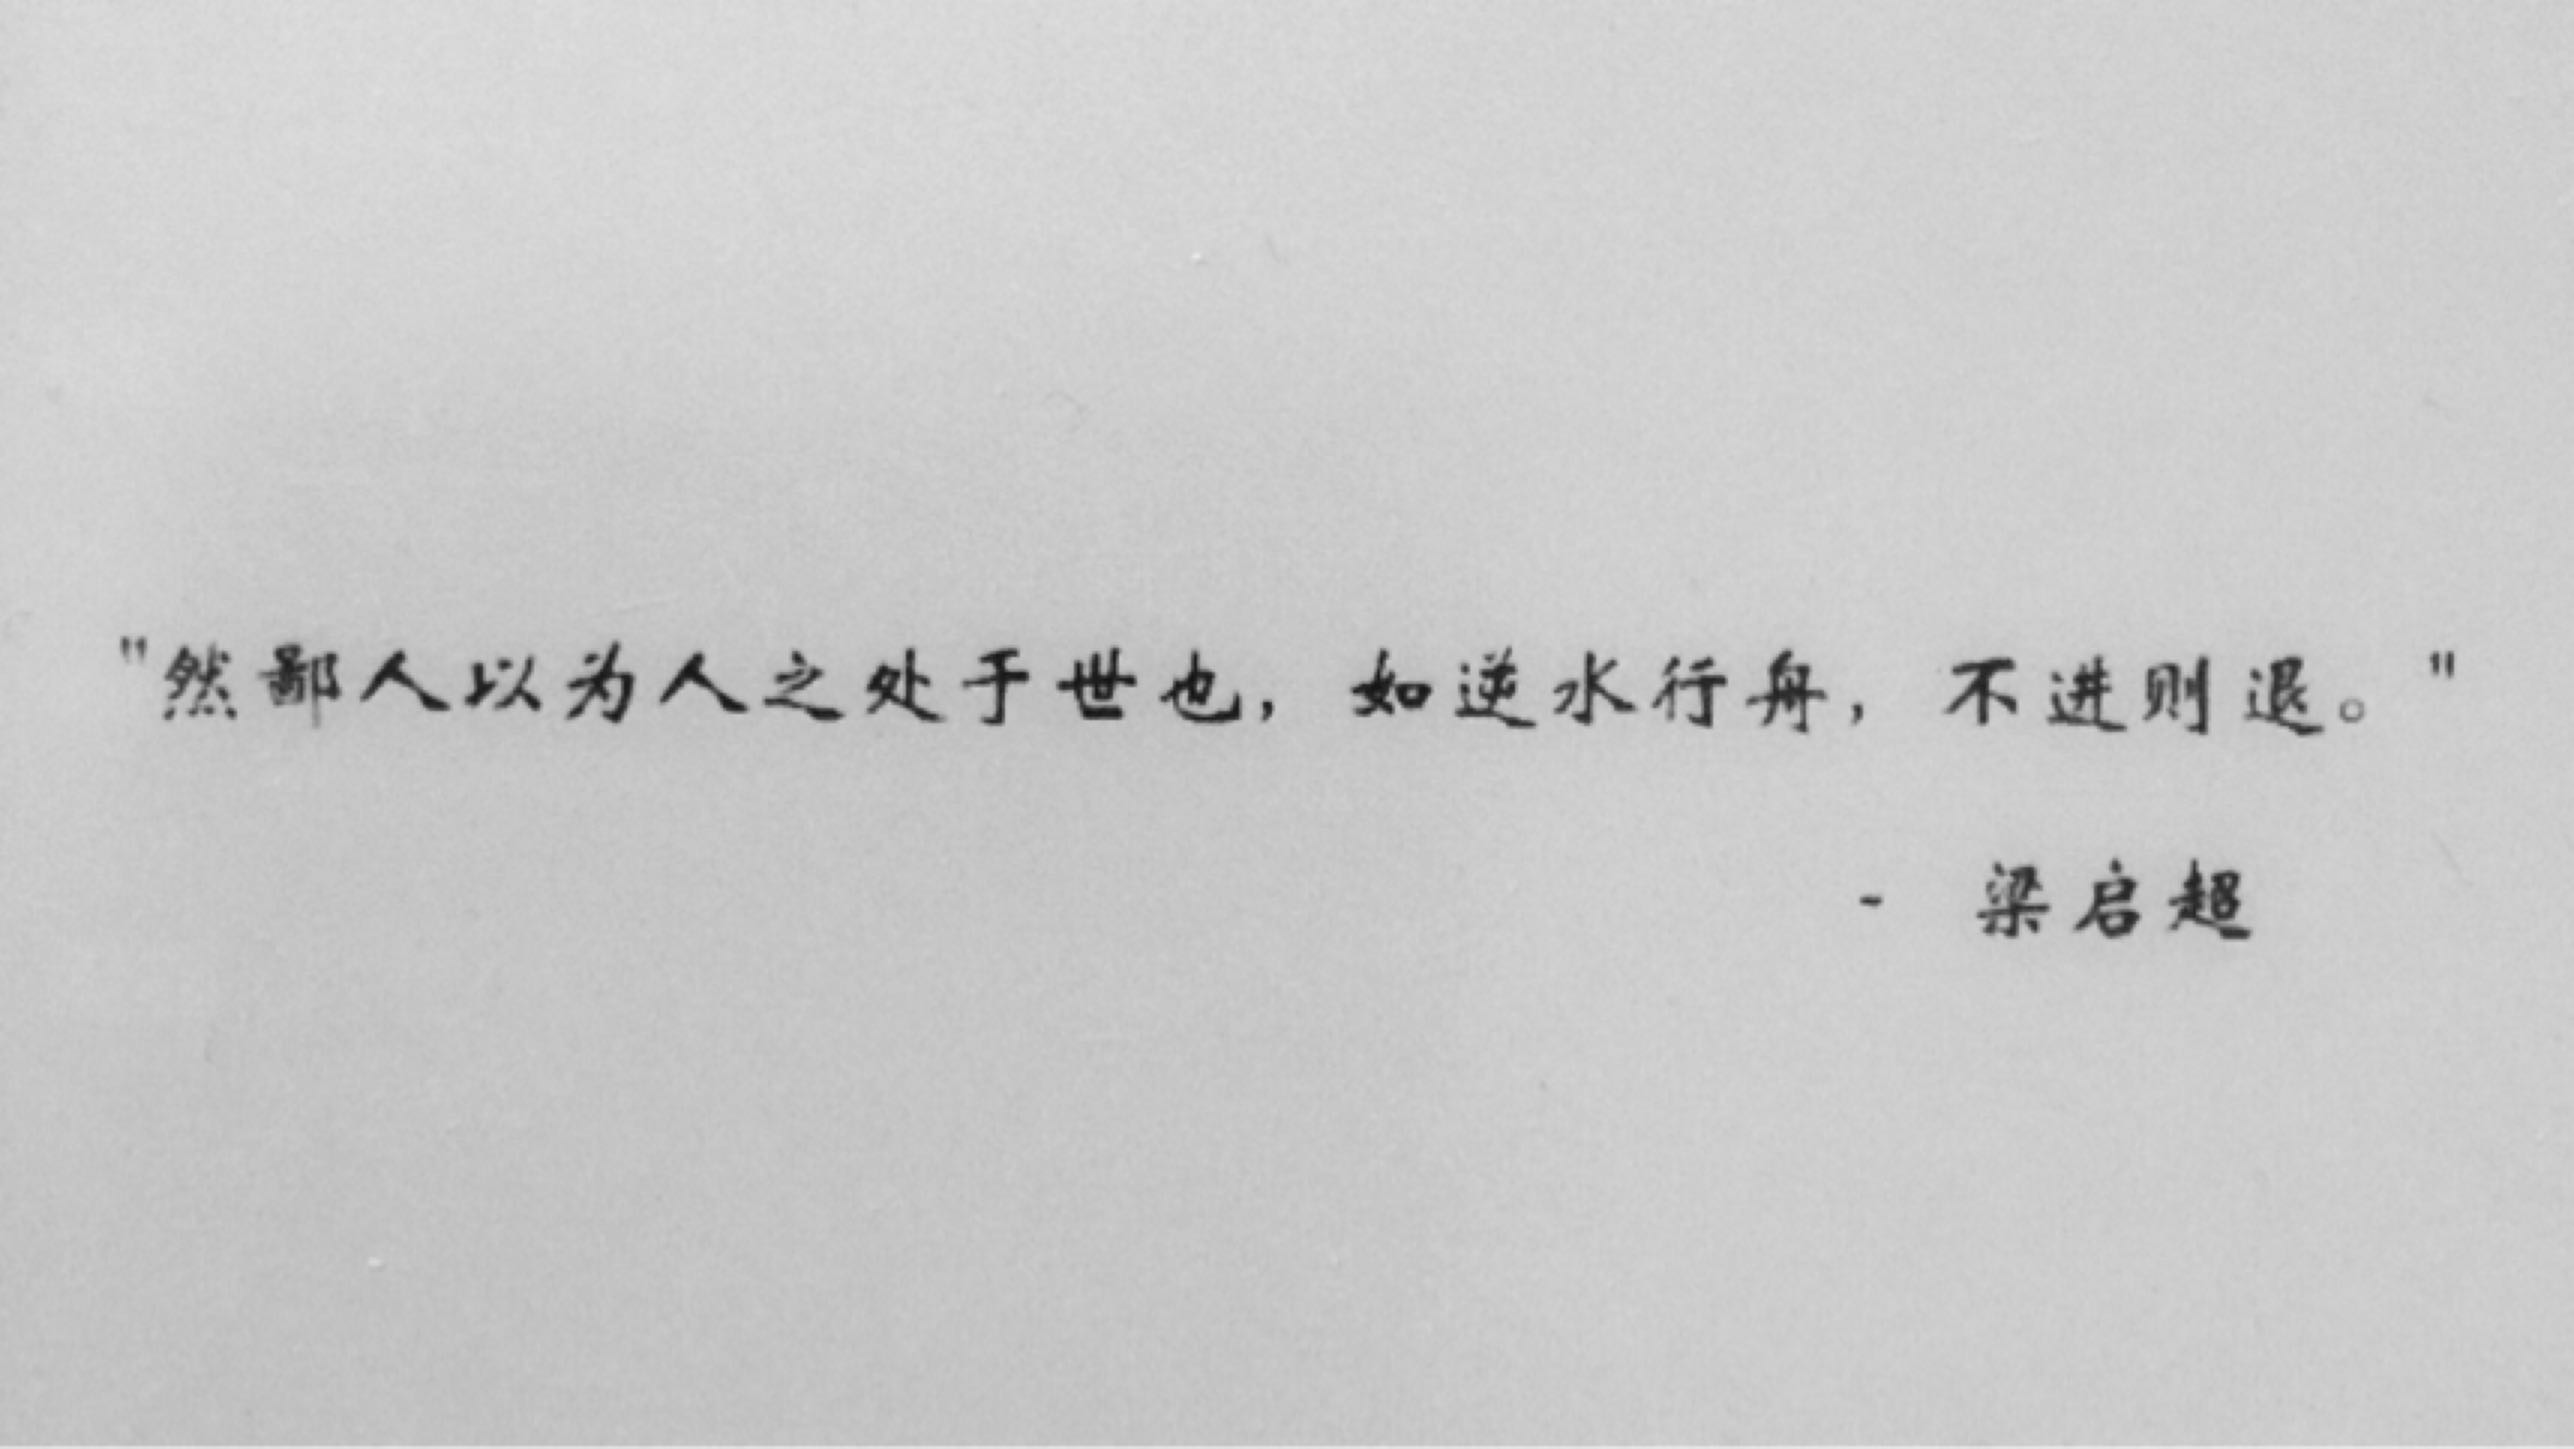 "然鄙人以为人之处于世也，如逆水行舟，不进则退。"
- 梁启超